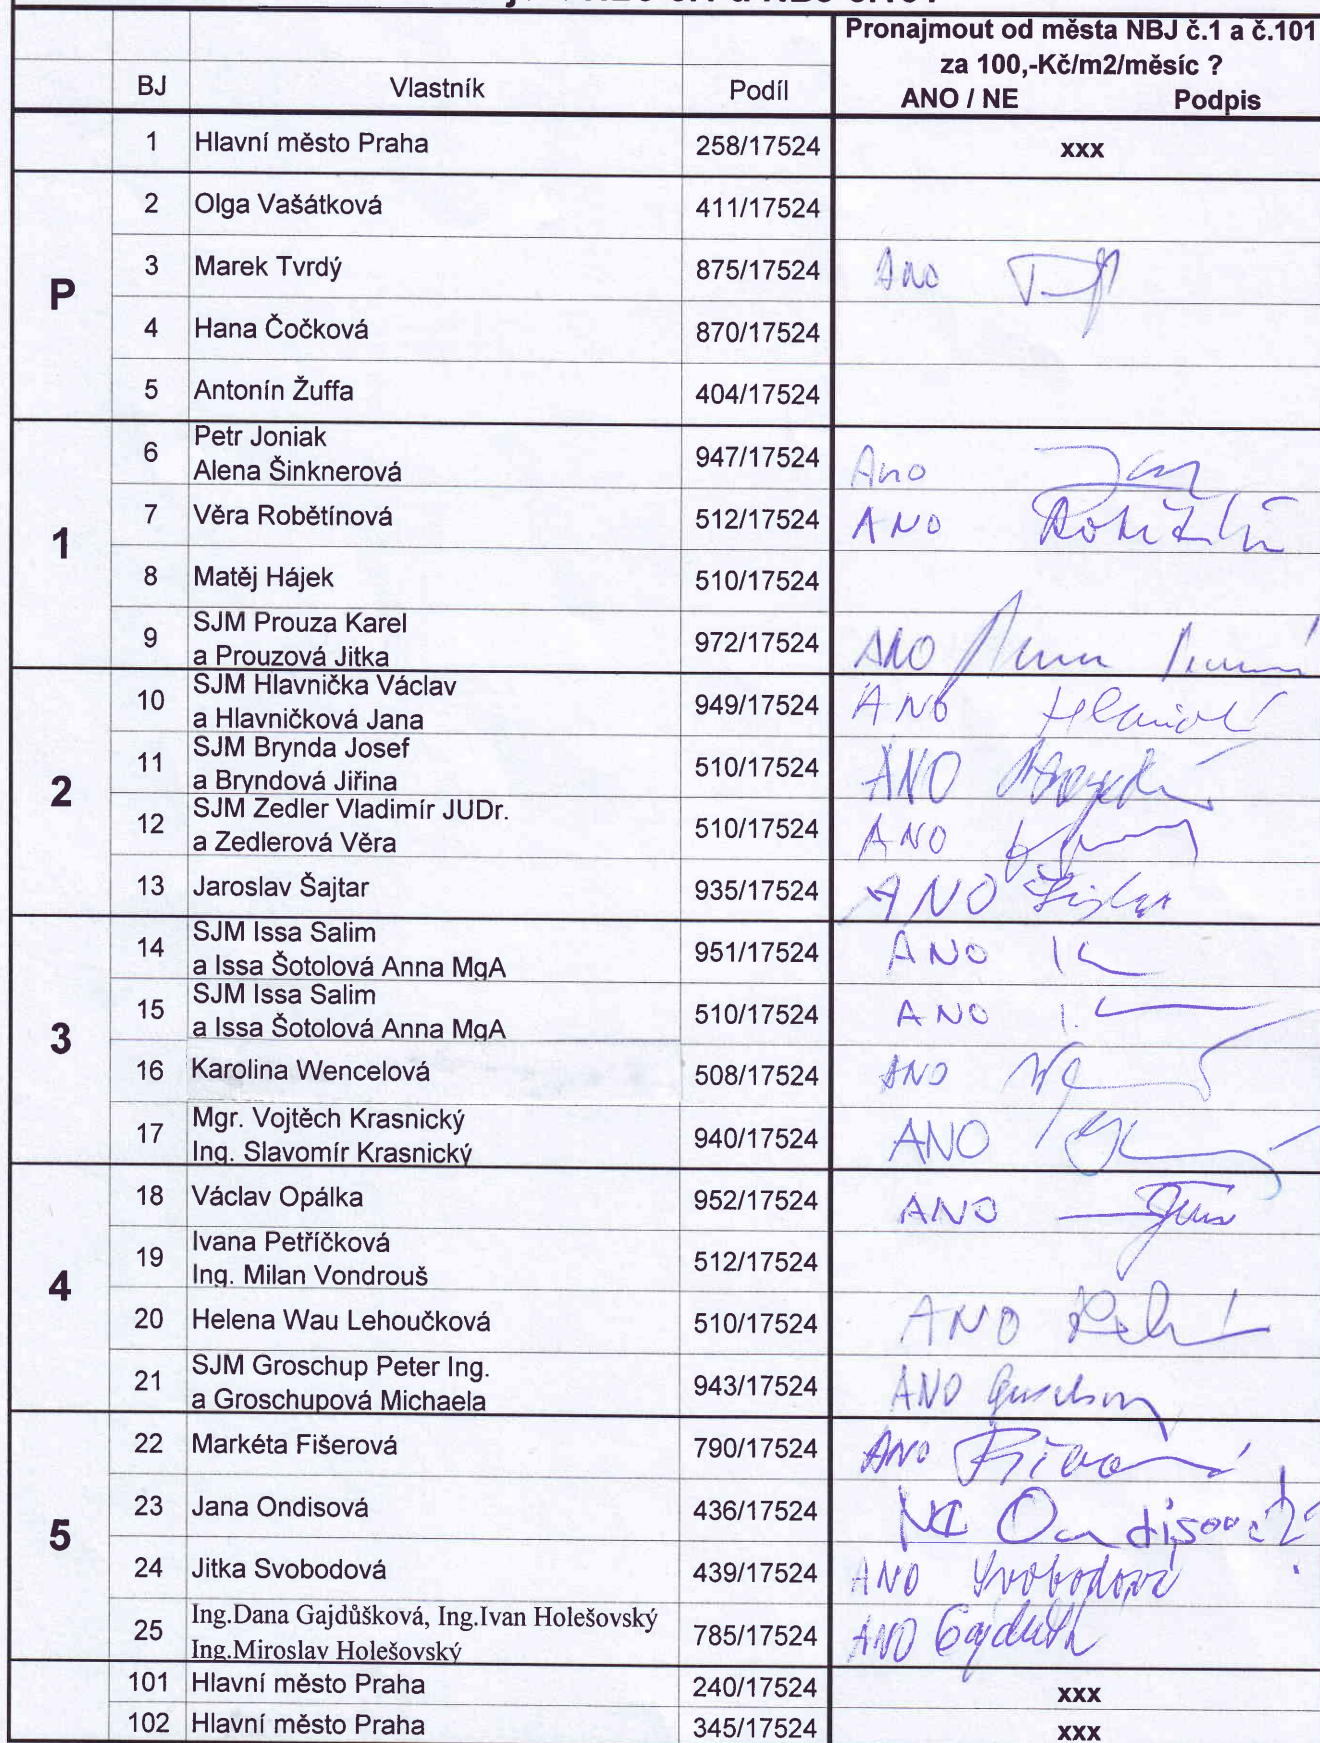 Pronajmout od města NBJ č.1 a č.101
za 100,-Kč/m2/měsíc ?
BJ Vlastník Podíl ANO / NE Podpis
1 Hlavní město Praha 258/17524 xxx
P
2 Olga Vašátková 411/17524
3 Marek Tvrdý 875/17524 Ano
4 Hana Čočková 870/17524
5 Antonín Žuffa 404/17524
1
6 Petr Joniak
Alena Šinknerová 947/17524 Ano
7 Věra Robětínová 512/17524 ANO
8 Matěj Hájek 510/17524
9 SJM Prouza Karel
a Prouzová Jitka 972/17524 ANO
2
10 SJM Hlavnička Václav
a Hlavničková Jana 949/17524 ANO
11 SJM Brynda Josef
a Bryndová Jiřina 510/17524 ANO
12 SJM Zedler Vladimír JUDr.
a Zedlerová Věra 510/17524 ANO
13 Jaroslav Šajtar 935/17524 ANO
3
14 SJM Issa Salim
a Issa Šotolová Anna MgA 951/17524 ANO
15 SJM Issa Salim
a Issa Šotolová Anna MgA 510/17524 ANO
16 Karolina Wencelová 508/17524 ANO
17 Mgr. Vojtěch Krasnický
Ing. Slavomír Krasnický 940/17524 ANO
4
18 Václav Opálka 952/17524 ANO
19 Ivana Petříčková
Ing. Milan Vondrouš 512/17524
20 Helena Wau Lehoučková 510/17524 ANO
21 SJM Groschup Peter Ing.
a Groschupová Michaela 943/17524 ANO
5
22 Markéta Fišerová 790/17524 ANO
23 Jana Ondisová 436/17524 NE Ondisová
24 Jitka Svobodová 439/17524 ANO Svobodová
25 Ing.Dana Gajdůšková, Ing.Ivan Holešovský
Ing.Miroslav Holešovský 785/17524 ANO
101 Hlavní město Praha 240/17524 xxx
102 Hlavní město Praha 345/17524 xxx